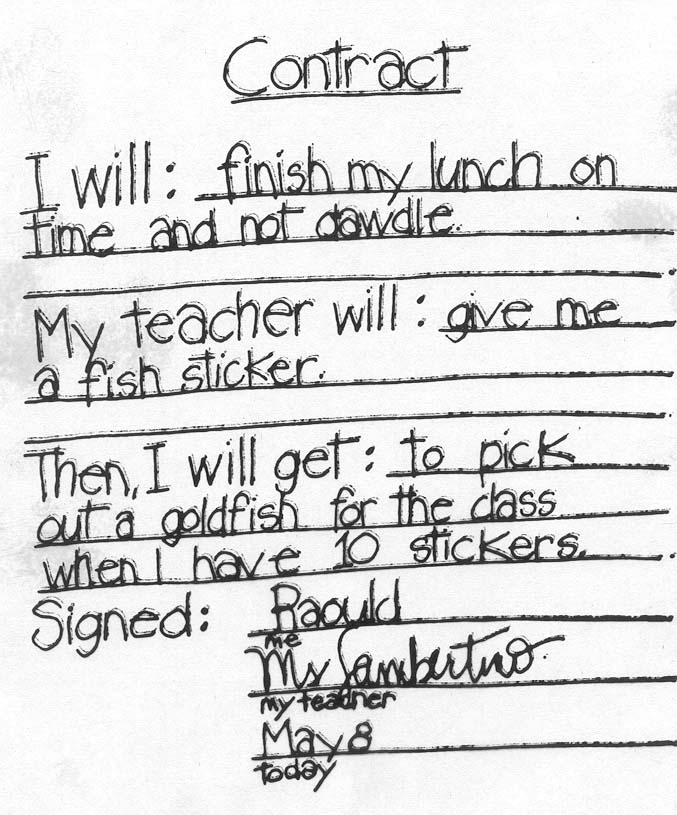 Contract
I will: finish my lunch on
time and not dawdle.
My teacher will: give me
a fish sticker.
Then, I will get: to pick
out a goldfish for the class
when I have 10 stickers.
Signed: Raould
me
Ms Lambertino
my teacher
May 8
today